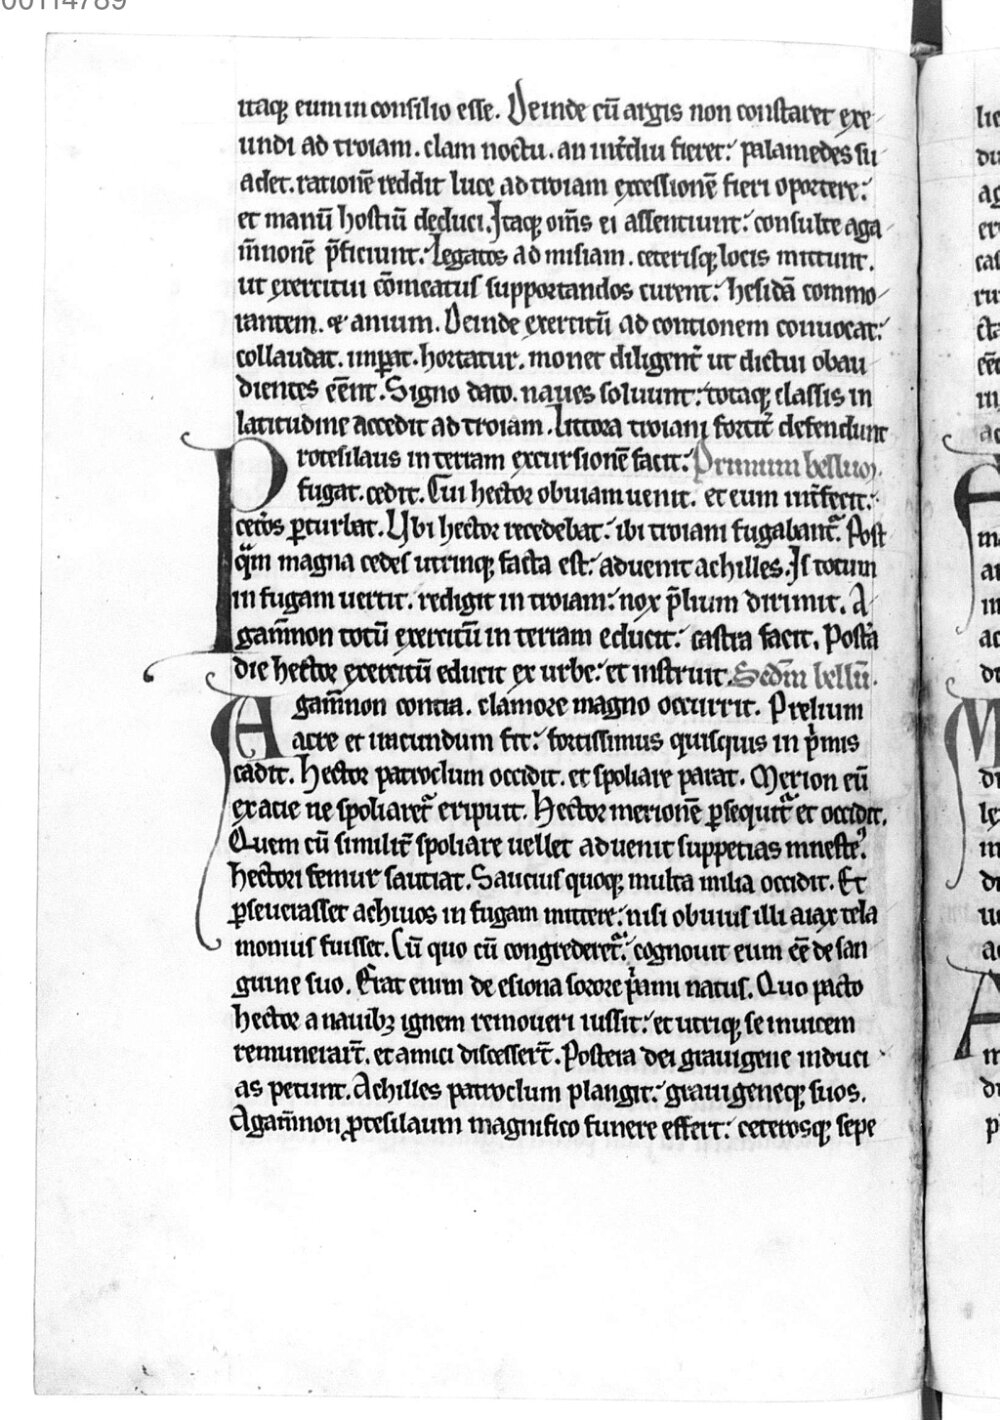 00114789
itaq; eum in consilio esse. Deinde cū argis non constaret exe
undi ad troiam. clam noctu. an int̄diu fieret: palamedes su
adet. rationē reddit luce ad troiam excessionē fieri oportere:
et manū hostiū deduci. Itaq; om̄s ei assentiunt: consulte aga
m̄nonē p̄ficiunt: Legatos ad misiam. ceterisq; locis mittunt.
ut exercitui cōmeatus supportandos curent: hesidā commo
rantem. & anium. Deinde exercitū ad contionem conuocat:
collaudat. imꝑat. hortatur. monet diligent̄ ut dictui obau
dientes eēnt. Signo dato. naues soluunt: totaq; classis in
latitudine accedit ad troiam. Littora troiani fortit̄ defendunt
Protesilaus in terram excursionē facit: Primum bellum.
fugat. cedit. Cui hector obuiam uenit. et eum int̄fecit:
cet̄os ꝑturbat. Ubi hector recedebat: ibi troiani fugabant᷑. Post
qͣm magna cedes utrinq; facta est: aduenit achilles. Is totum
in fugam uertit. redigit in troiam: nox p̄lium dirimit. A
gam̄non totū exercitū in terram educit: castra facit. Posťa
die hector exercitū educit ex urbe: et instruit. Secd̄m bellū.
Agam̄non contra. clamore magno occurrit. Prelium
acre et iracundum fit: fortissimus quisquis in pͥmis
cadit. Hector patroclum occidit. et spoliare parat. Merion eū
ex acie ne spoliaret᷑ eripuit. Hector merionē ꝑsequit᷑ et occidit.
Quem cū similit̄ spoliare uellet aduenit suppetias mneste᷒.
hectori femur sauciat. Saucius quoq; multa milia occidit. Et
ꝑseuerasset achiuos in fugam mittere: nisi obuius illi aiax tela
monius fuisset. Cū quo cū congrederet᷑: cognouit eum eē de san
guine suo. Erat enim de esiona sorore pͥami natus. Quo pacto
hector a nauibꝫ ignem remoueri iussit: et utriq; se inuicem
remunerart̄. et amici discessert̄. Postera dei graiugene induci
as petunt. Achilles patroclum plangit: graiugeneq; suos.
Agam̄non ꝓtesilaum magnifico funere effert: ceterosq; sepe